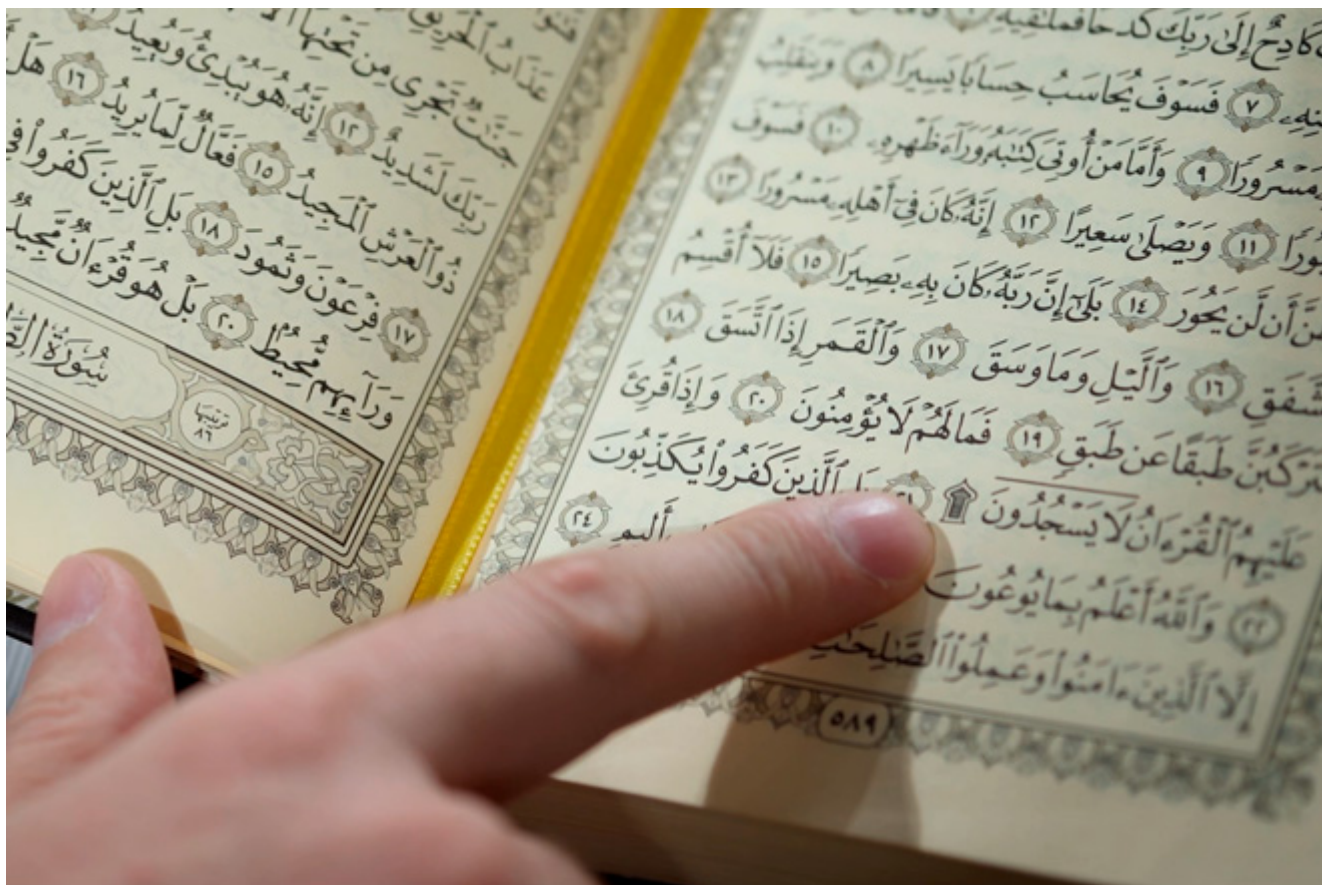 كَادِحٌ إِلَىٰ رَبِّكَ كَدْحًا فَمُلَٰقِيهِ ٦
٧ فَسَوْفَ يُحَاسَبُ حِسَابًا يَسِيرًا ٨ وَيَنقَلِبُ
مَسْرُورًا ٩ وَأَمَّا مَنْ أُوتِىَ كِتَٰبَهُۥ وَرَآءَ ظَهْرِهِۦ ١٠ فَسَوْفَ
١١ وَيَصْلَىٰ سَعِيرًا ١٢ إِنَّهُۥ كَانَ فِىٓ أَهْلِهِۦ مَسْرُورًا ١٣
أَن لَّن يَحُورَ ١٤ بَلَىٰٓ إِنَّ رَبَّهُۥ كَانَ بِهِۦ بَصِيرًا ١٥ فَلَآ أُقْسِمُ
١٦ وَٱلَّيْلِ وَمَا وَسَقَ ١٧ وَٱلْقَمَرِ إِذَا ٱتَّسَقَ ١٨
طَبَقًا عَن طَبَقٍ ١٩ فَمَا لَهُمْ لَا يُؤْمِنُونَ ٢٠ وَإِذَا قُرِئَ
عَلَيْهِمُ ٱلْقُرْءَانُ لَا يَسْجُدُونَ ۩ ٱلَّذِينَ كَفَرُوا۟ يُكَذِّبُونَ
٢٢ وَٱللَّهُ أَعْلَمُ بِمَا يُوعُونَ أَلِيمٍ ٢٤
إِلَّا ٱلَّذِينَ ءَامَنُوا۟ وَعَمِلُوا۟ ٱلصَّٰلِحَٰتِ
٥٨٩
عَذَابُ ٱلْحَرِيقِ
جَنَّٰتٌ تَجْرِى مِن تَحْتِهَا
رَبِّكَ لَشَدِيدٌ ١٢ إِنَّهُۥ هُوَ يُبْدِئُ وَيُعِيدُ
ذُو ٱلْعَرْشِ ٱلْمَجِيدُ ١٥ فَعَّالٌ لِّمَا يُرِيدُ ١٦ هَلْ
١٧ فِرْعَوْنَ وَثَمُودَ ١٨ بَلِ ٱلَّذِينَ كَفَرُوا۟ فِى
وَرَآئِهِم مُّحِيطٌۢ ٢٠ بَلْ هُوَ قُرْءَانٌ مَّجِيدٌ
سُورَةُ
ترتيبها
٨٦